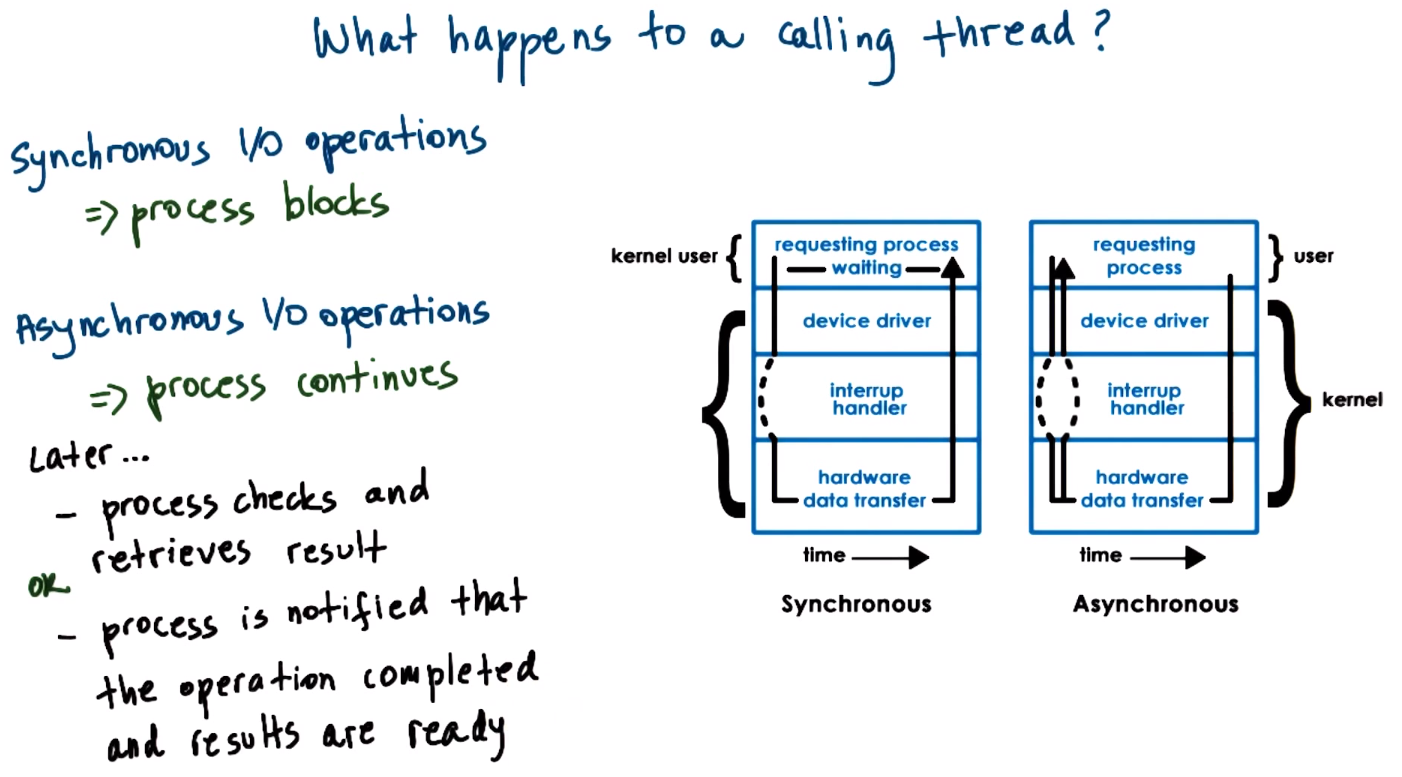 What happens to a calling thread?
Synchronous I/O operations
=> process blocks
Asynchronous I/O operations
=> process continues
Later...
- process checks and
retrieves result
OR
- process is notified that
the operation completed
and results are ready
kernel user
requesting process
waiting
device driver
interrup
handler
hardware
data transfer
time
Synchronous
requesting
process
user
device driver
interrup
handler
kernel
hardware
data transfer
time
Asynchronous